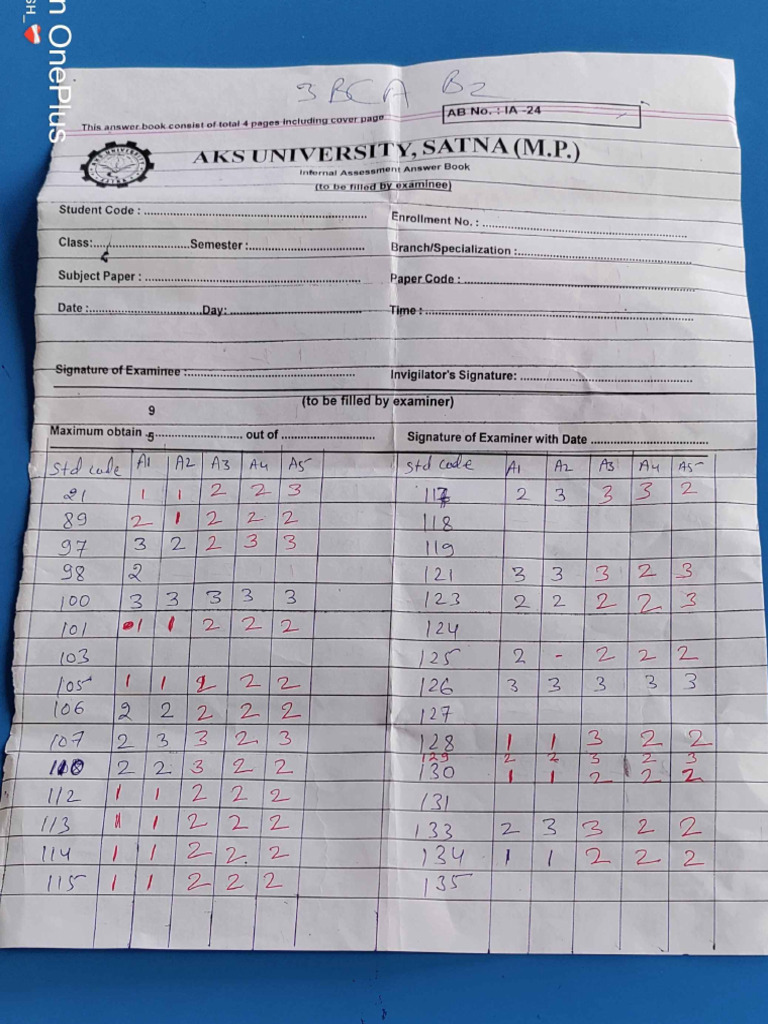 n OnePlus
3 BCA B2
This answer book consist of total 4 pages including cover page
AB No. : IA -24
AKS UNIVERSITY, SATNA (M.P.)
Internal Assessment Answer Book
(to be filled by examinee)
Student Code : Enrollment No. :
Class: Semester : Branch/Specialization :
Subject Paper : Paper Code :
Date : Day: Time :
Signature of Examinee : Invigilator's Signature:
(to be filled by examiner)
9
Maximum obtain 5 out of Signature of Examiner with Date
Std code A1 A2 A3 A4 A5 Std code A1 A2 A3 A4 A5
21 1 1 2 2 3 117 2 3 3 3 2
89 2 1 2 2 2 118
97 3 2 2 3 3 119
98 2 121 3 3 3 2 3
100 3 3 3 3 3 123 2 2 2 2 3
101 1 1 2 2 2 124
103 125 2 - 2 2 2
105 1 1 2 2 2 126 3 3 3 3 3
106 2 2 2 2 2 127
107 2 3 3 2 3 128 1 1 3 2 2
129 2 2 3 2 3
110 2 2 3 2 2 130 1 1 2 2 2
112 1 1 2 2 2 131
113 1 1 2 2 2 133 2 3 3 2 2
114 1 1 2 2 2 134 1 1 2 2 2
115 1 1 2 2 2 135